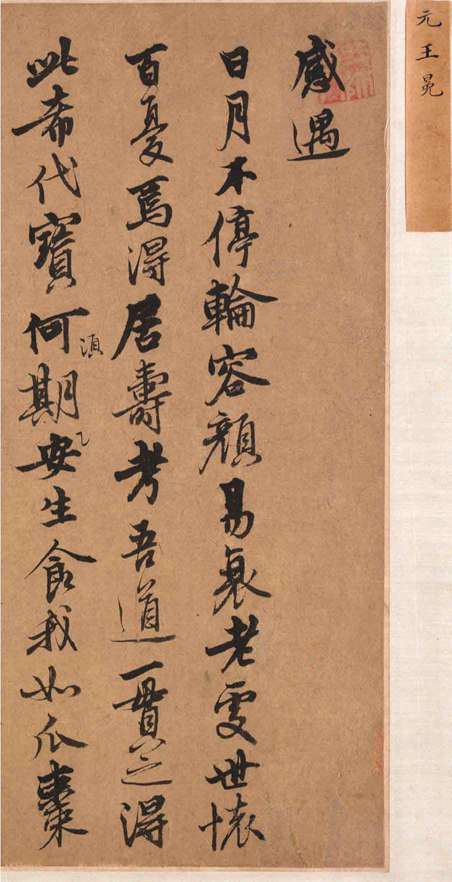 元王冕
感遇
日月不停輪容顏易衰老處世懷
百憂焉得居壽考吾道一貫之得
此希代寶何須期安生食我如瓜棗